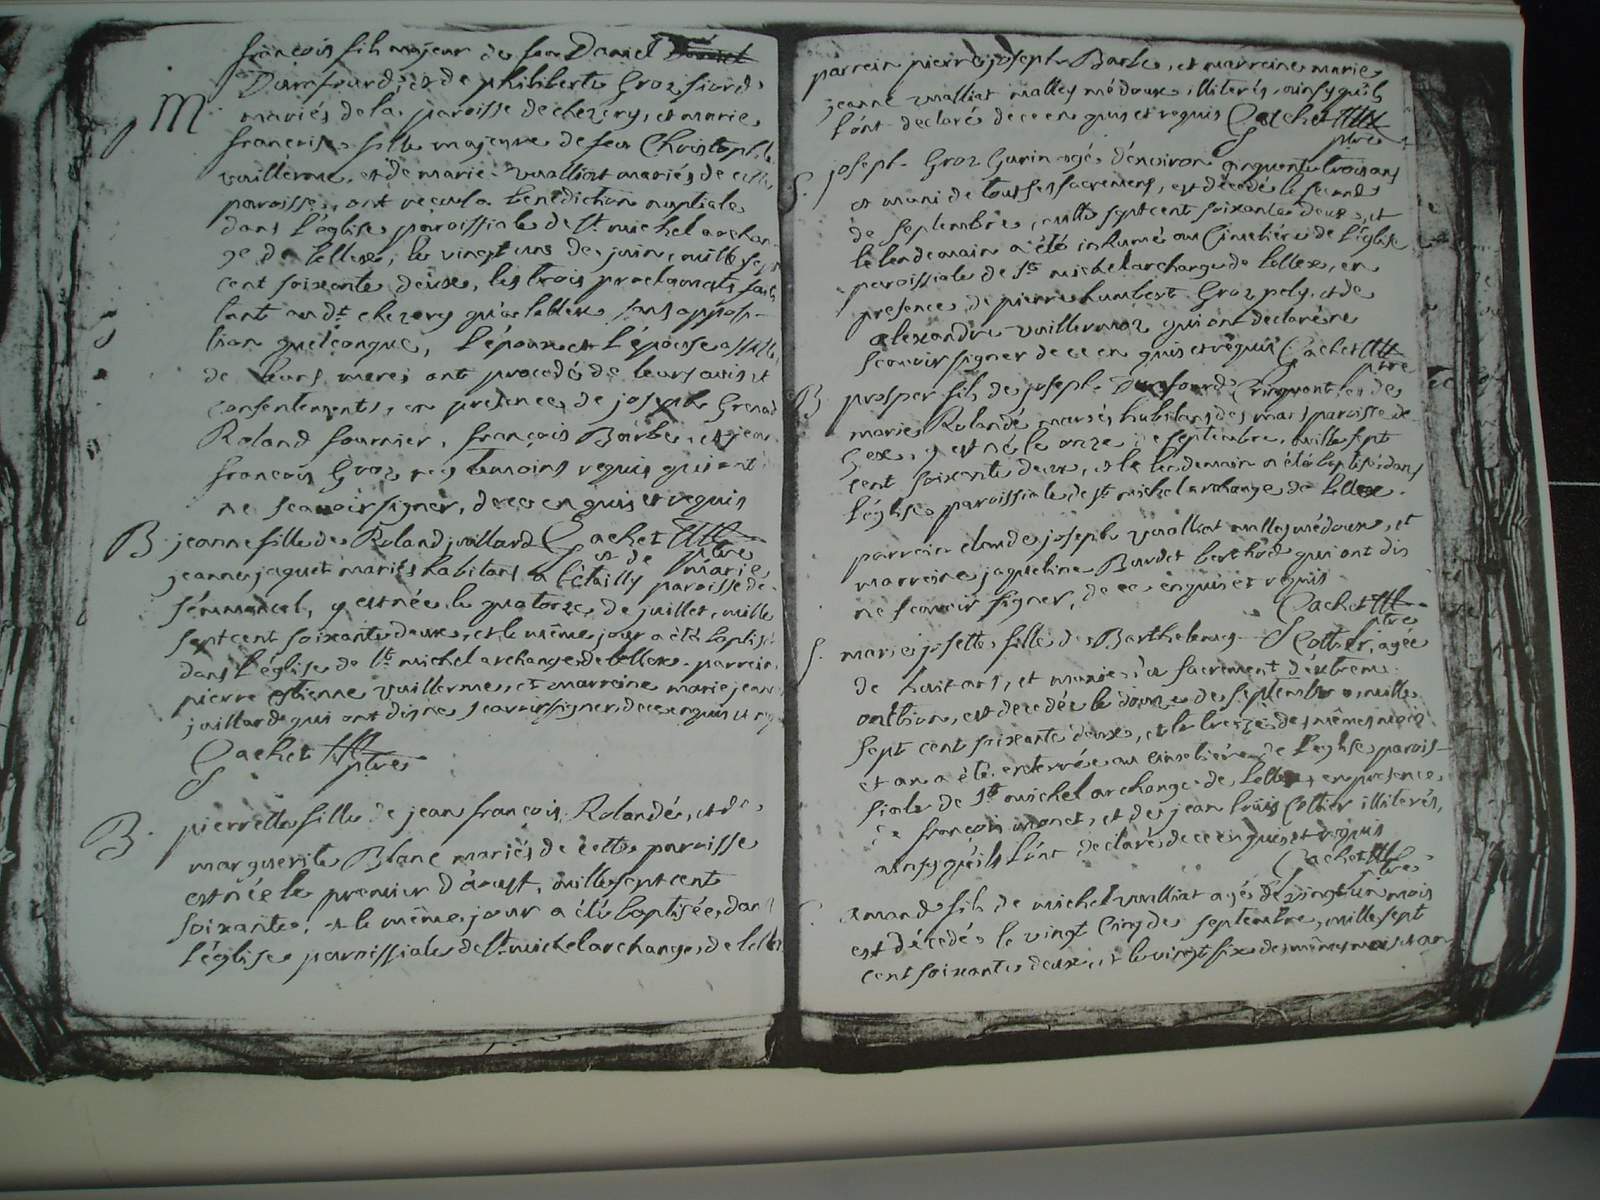 françois fils majeur de feu Daniel
Durafourd, et de philiberte Groz fiord
M mariés de la paroisse de chezery, et marie
françoise fille majeure de feu Christophle
vuillerme, et de marie vualliat mariés de cette
paroisse, ont reçu la benediction nuptiale
dans l'église paroissiale de St michel archan-
ge de Lellex, le vingt uns de juin, mille sept
cent soixante deux, les trois proclamats faits
tant audt chezery qu'a lellex sans opposi-
tion quelconque, L'époux et L'épouse
de leurs meres ont procedés de leurs avis et
consentements, en presence de joseph Grenad
Roland fournier, françois Barbe, et jean
françois Groz temoins requis qui ont
ne scavoir signer, de ce en quis et requis
B jeanne fille de Roland juillard Cachet ptre
et de marie
jeanne jaquet mariés habitans a paroisse de
septmoncel, y est née le quatorze de juillet, mille
sept cent soixante deux, et le même jour a été baptisé
dans L'église de St michel archange de lellex. parrein
pierre estienne vuillerme, et marreine marie jean
juillard qui ont dis ne scavoir signer, de ce enquis et req
Cachet ptre
B. pierrette fille de jean françois Rolandé, et de
marguerite Blanc mariés de cette paroisse
est née le premier d'aoust, mille sept cent
soixante, et le même jour a été baptisée dans
L'église paroissiale de St michel archange de lellex
parrein pierre joseph Barbe, et marreine marie
jeanne vualliat malley médoux, illiterés, ainsy qu'ils
l'ont declaré de ce en quis et requis Cachet
ptre
S. joseph Groz Gurin agé d'environ cinquante trois ans
et muni de tous ses sacremens, est décedé le second
de septembre, mille sept cent soixante deux, et
le lendemain a été inhumé au Cimetière de L'église
paroissiale de St michel archange de Lellex, en
presence de pierre humbert Groz pely, et de
alexandre vuillermoz qui ont declaré ne
scavoir signer de ce en quis et requis Cachet
ptre
B prosper fils de joseph Durafourd et de
marie Rolandé mariés habitans des mars paroisse de
Gex, y est né le onze de septembre, mille sept
cent soixante deux, et le lendemain a été baptisé dans
L'église paroissiale de St michel archange de Lellex.
parrein claude joseph vualliat malley médoux, et
marreine jaqueline Baudet berthod qui ont dis
ne scavoir signer, de ce enquis et requis
Cachet
ptre
S. marie josette fille de Barthelemy Cottier, agée
de huit ans, et munie du sacrement d'extreme
onction, est decedée le douze de septembre, mille
sept cent soixante deux, et le treize des mêmes mois
et an a été enterrée au cimetière de L'eglise parois-
siale de St michel archange de Lellex, en presence
de françois monet, et de jean louis Cottier illiterés,
ainsy qu'ils L'ont declaré de ce enquis et requis
Cachet ptre
amand fils de michel vualliat agé de vingt un mois
est décedé le vingt cinq de septembre, mille sept
cent soixante deux, et le vingt six des mêmes mois et an